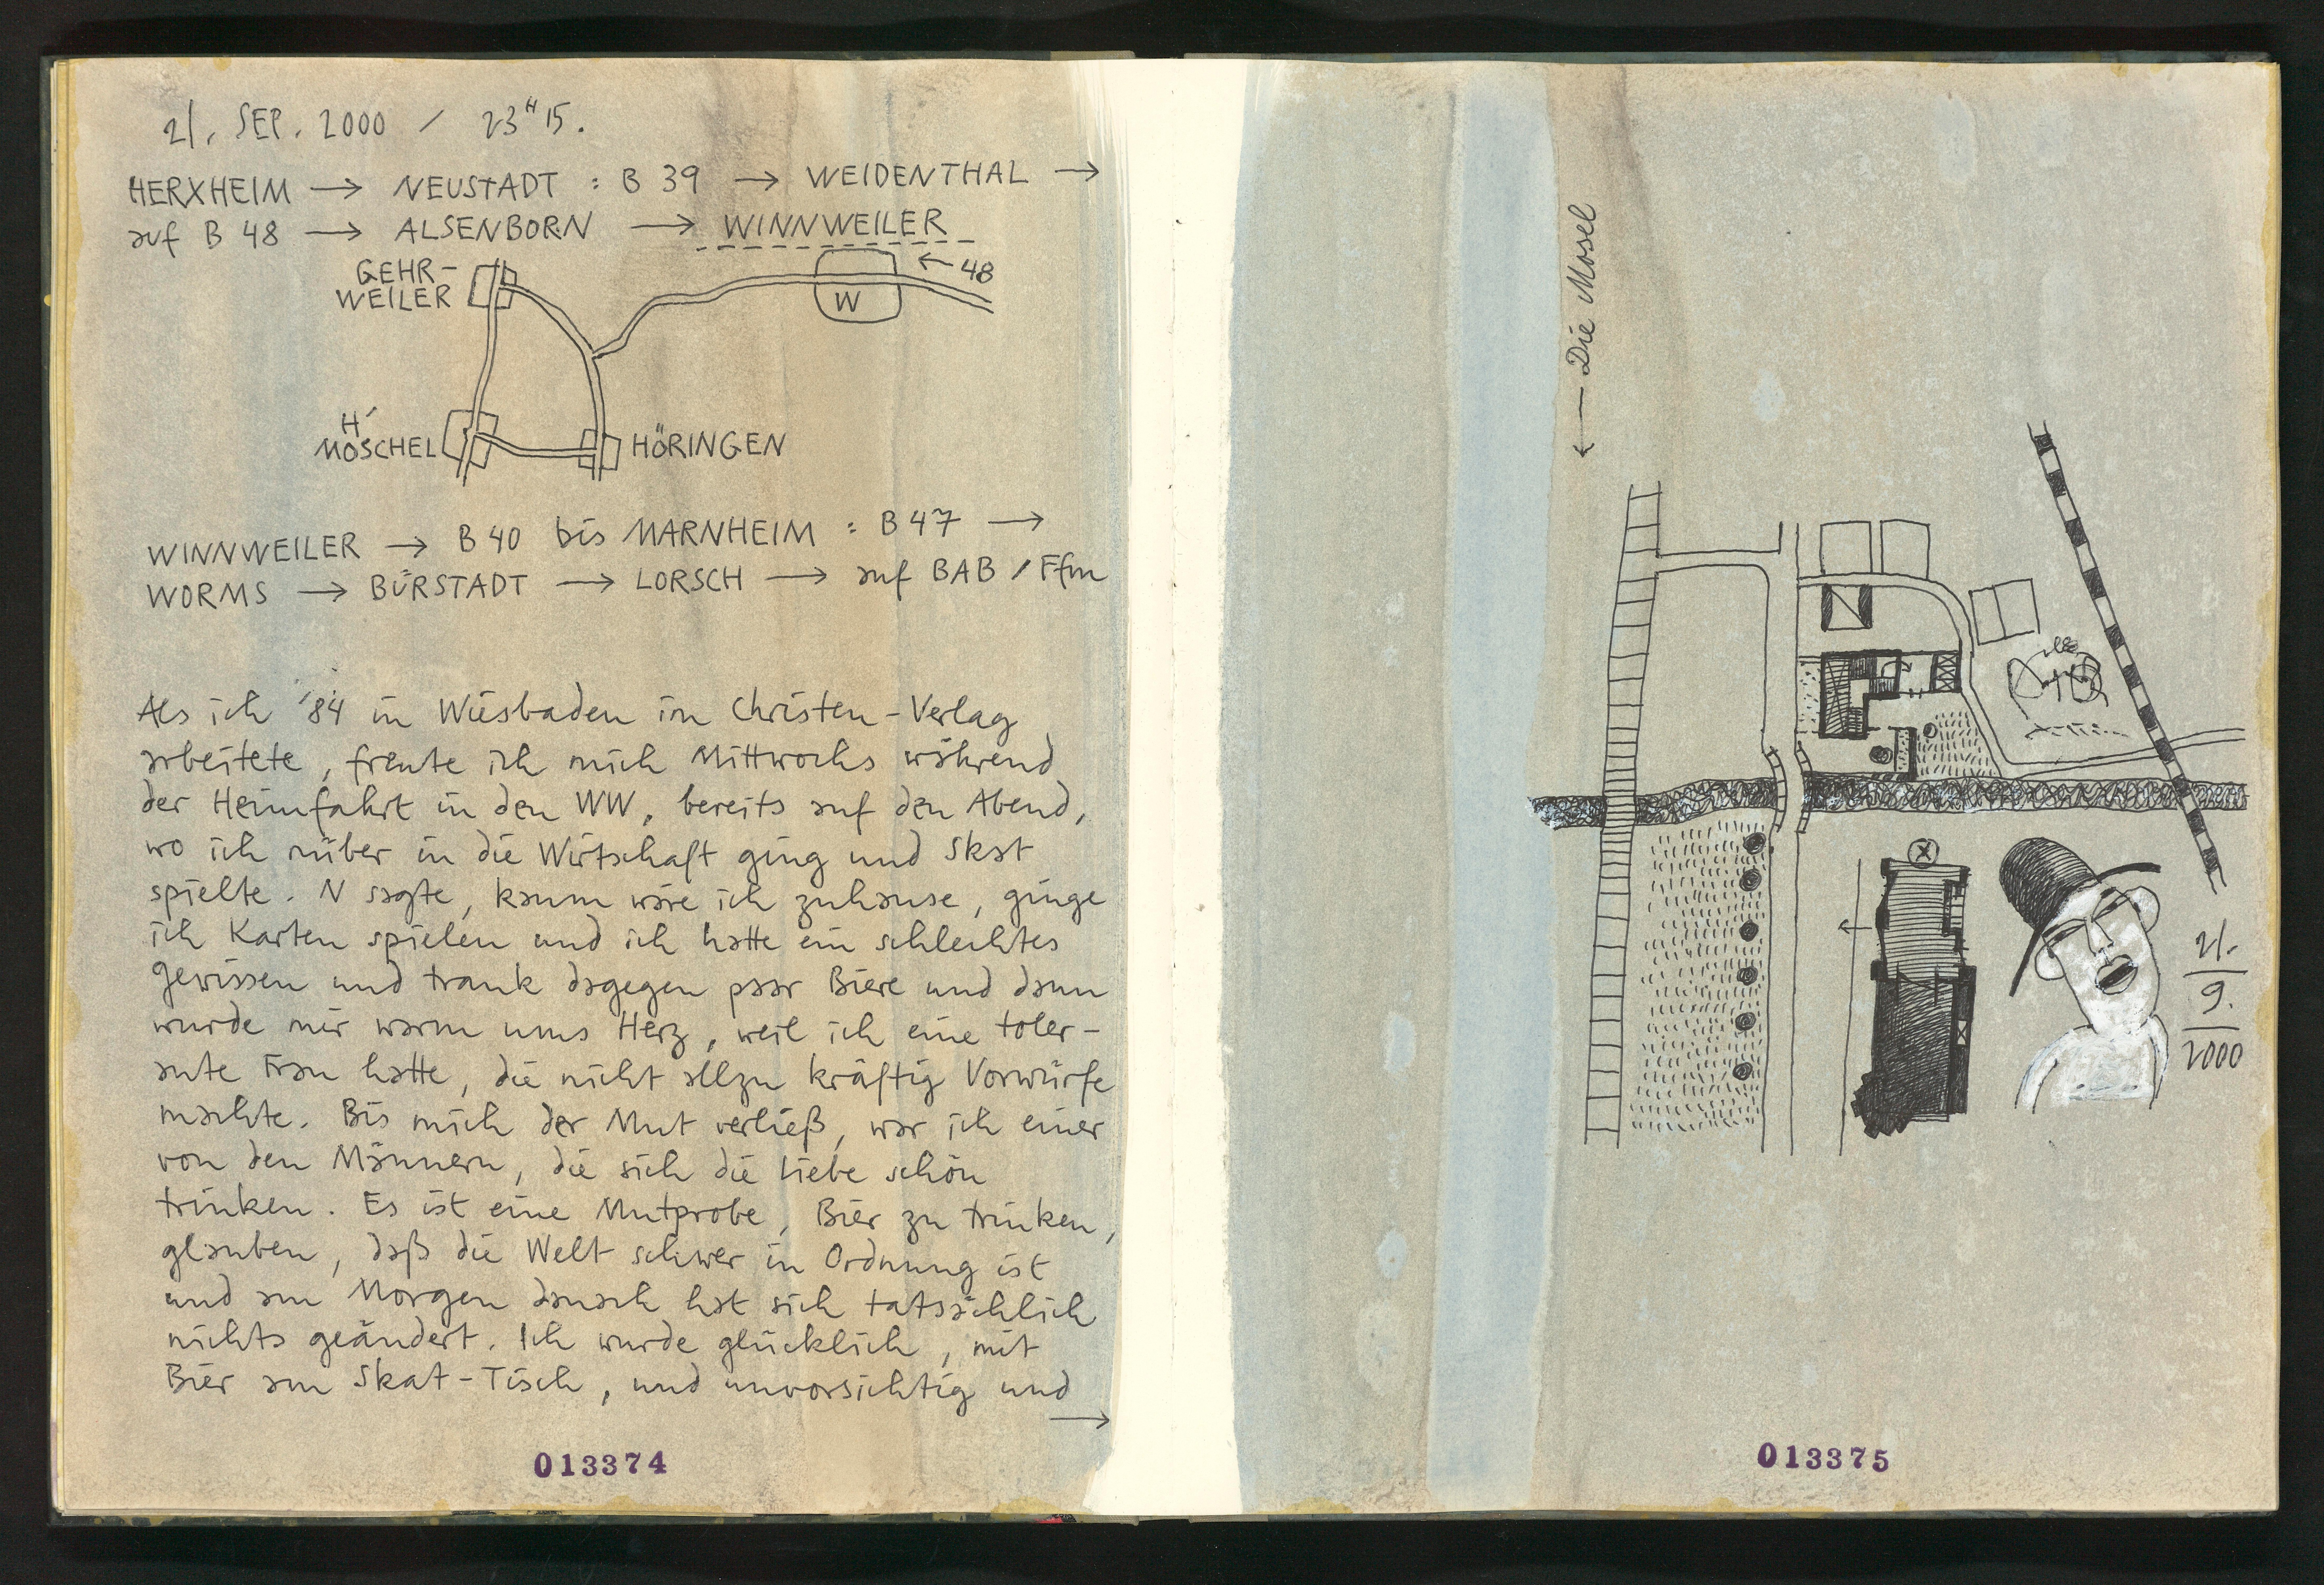 21. SEP. 2000 / 23H15.
HERXHEIM → NEUSTADT : B 39 → WEIDENTHAL →
auf B 48 → ALSENBORN → WINNWEILER
GEHR-
WEILER
← 48
W
H'
MOSCHEL
HÖRINGEN
WINNWEILER → B 40 bis MARNHEIM : B 47 →
WORMS → BÜRSTADT → LORSCH → auf BAB / Ffm
Als ich '84 in Wiesbaden im Christen-Verlag
arbeitete, freute ich mich Mittwochs während
der Heimfahrt in den WW, bereits auf den Abend,
wo ich rüber in die Wirtschaft ging und Skat
spielte. N sagte, kaum wäre ich zuhause, ginge
ich Karten spielen und ich hatte ein schlechtes
Gewissen und trank dagegen paar Biere und dann
wurde mir warm ums Herz, weil ich eine toler-
ante Frau hatte, die nicht allzu kräftig Vorwürfe
machte. Bis mich der Mut verließ, war ich einer
von den Männern, die sich die Liebe schön
trinken. Es ist eine Mutprobe, Bier zu trinken,
glauben, daß die Welt schwer in Ordnung ist
und am Morgen danach hat sich tatsächlich
nichts geändert. Ich wurde glücklich, mit
Bier am Skat-Tisch, und unvorsichtig und
→
013374
← Die Mosel
X
21.
9.
2000
013375